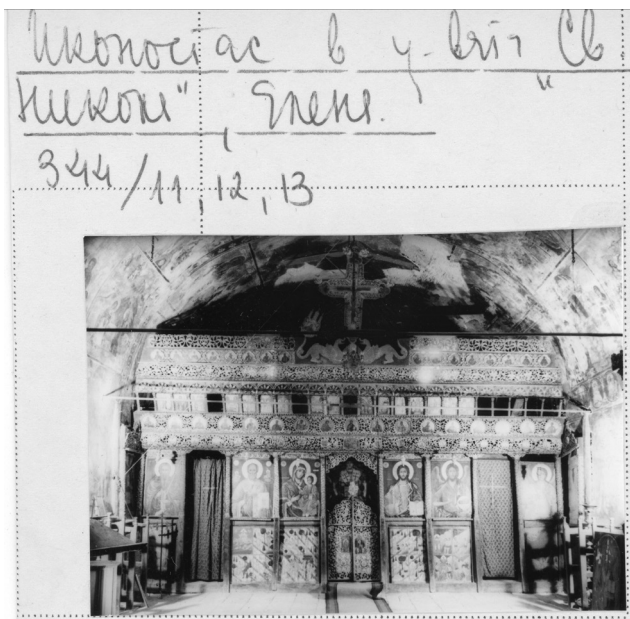 Иконостас в ц-вта „Св.
Никола", Елена.
344/11,12,13